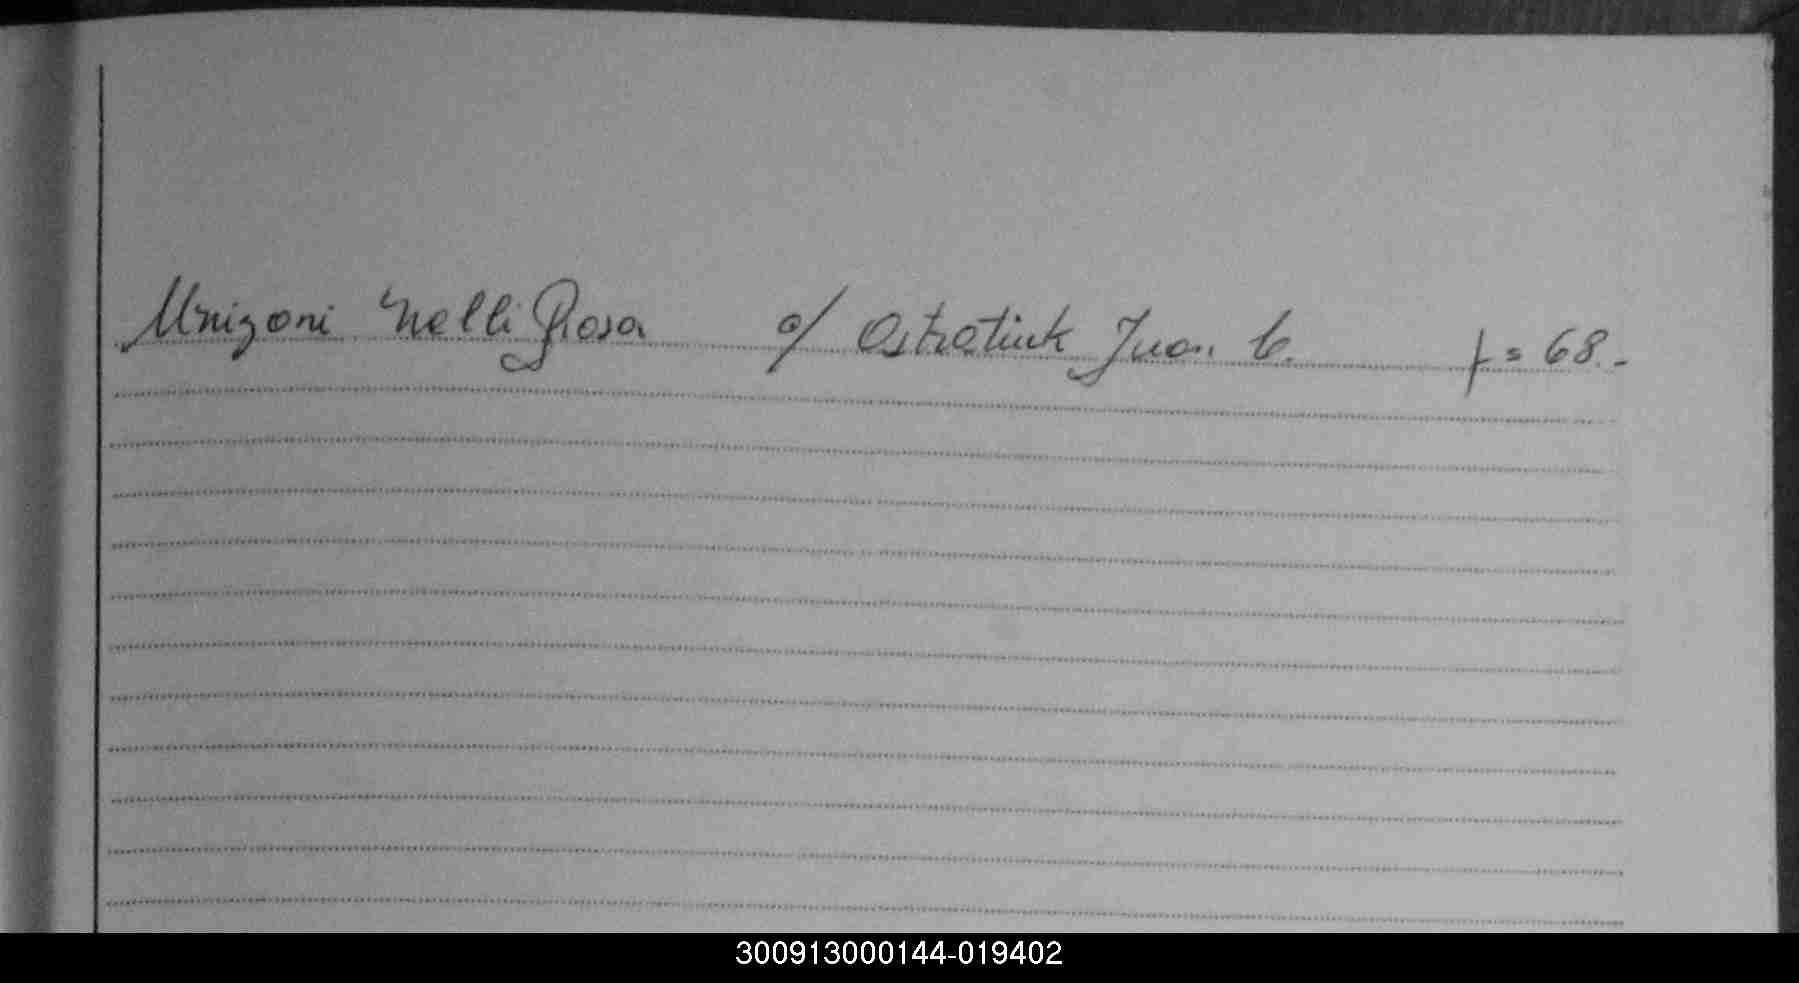 Unizoni Nelli Rosa c/ Ostratiuk Juan C. f = 68.-
300913000144-019402